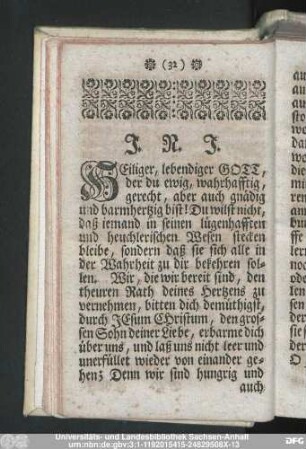 (32)
J. N. J.
HEiliger, lebendiger GOTT,
der du ewig, wahrhafftig,
gerecht, aber auch gnädig
und barmhertzig bist! Du wilst nicht,
daß iemand in seinen lügenhafften
und heuchlerischen Wesen stecken
bleibe, sondern daß sie sich alle in
der Wahrheit zu dir bekehren sol-
len. Wir, die wir bereit sind, den
theuren Rath deines Hertzens zu
vernehmen, bitten dich demüthigst,
durch JEsum CHristum, den gros-
sen Sohn deiner Liebe, erbarme dich
über uns, und laß uns nicht leer und
unerfüllet wieder von einander ge-
hen; Denn wir sind hungrig und
auch
Universitäts- und Landesbibliothek Sachsen-Anhalt
urn:nbn:de:gbv:3:1-1192015415-24829508X-13
DFG